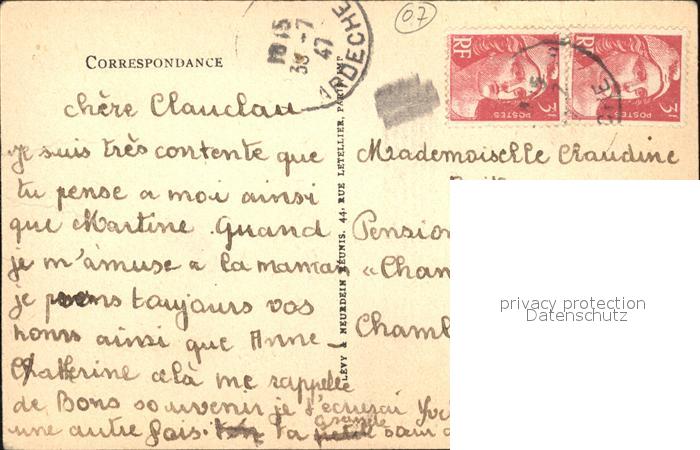 CORRESPONDANCE
18 15
30 -7
47
ARDECHE
07
RF
3F
POSTES
RF
3F
POSTES
chère Clauclau
je suis très contente que
tu pense a moi ainsi
que Martine. Quand
je m'amuse a la maman
je pens toujours vos
noms ainsi que Anne-
Chatterine cela me rappelle
de Bons souvenir je t'ecrirai
une autre fois. ta grande
petite sœur
LÉVY & NEURDEIN RÉUNIS, 44, RUE LETELLIER, PARIS
Mademoiselle Claudine
Pension
«Cham
Chamb
privacy protection
Datenschutz